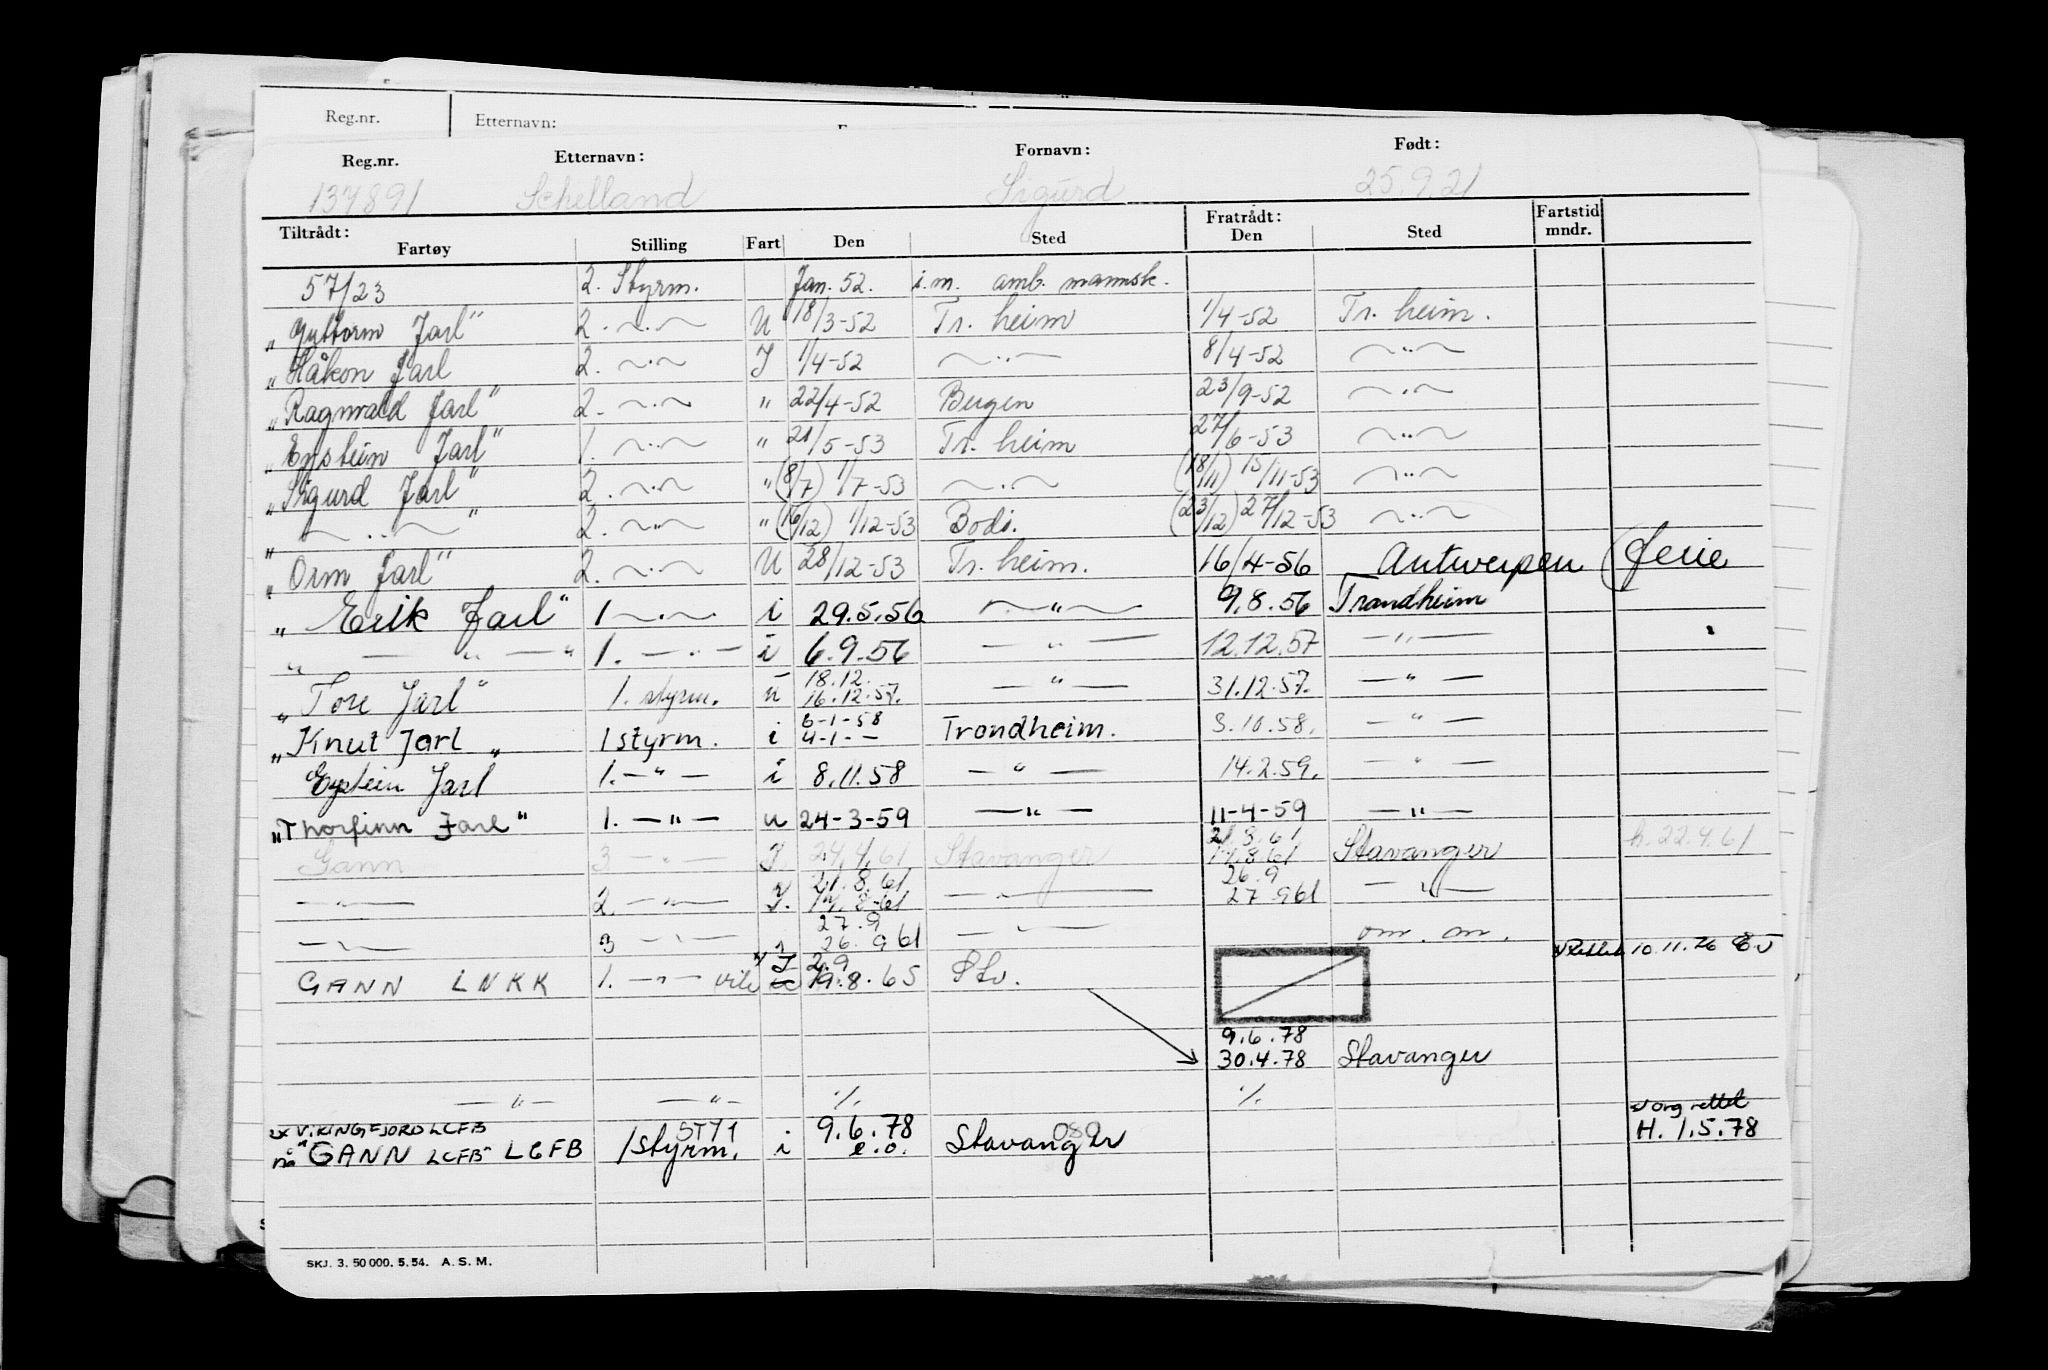 Reg.nr. Etternavn:
Reg.nr. Etternavn: Fornavn: Født:
137891 Schelland Sigurd 25.9.21
Tiltrådt: Fratrådt: Fartstid
Fartøy Stilling Fart Den Sted Den Sted mndr.
57/23 2. Styrm. Jan. 52. i.m. amb. mannsk.
"Guttorm Jarl" 2. ~.~ U 18/3-52 Tr. heim 1/4-52 Tr. heim.
"Håkon Jarl 2. ~.~ I 1/4-52 ~..~ 8/4-52 ~..~
"Ragnvald Jarl" 2. ~.~ " 22/4-52 Bergen 23/9-52 ~.~
"Eystein Jarl" 1. ~.~ " 21/5-53 Tr. heim 27/6-53 ~..~
"Sigurd Jarl" 2. ~.~ " (8/7) 1/7-53 ~.~ (18/11) 15/11-53 ~..~
" ~..~ " 2. ~..~ " (16/12) 1/12-53 Bodø. (23/12) 27/12-53 ~..~
"Orm Jarl" 2. ~.~ U 28/12-53 Tr. heim. 16/4-56 Antwerpen (ferie
"Erik Jarl" 1 ~.~ i 29.5.56 ~"~ 9.8.56 Trondheim
" — " — " 1. — " — i 6.9.56 — " — 12.12.57 — " —
18.12.
"Tore Jarl" 1. styrm. u 16.12.57. — " — 31.12.57. — " —
6-1-58
"Knut Jarl " 1 styrm. i 4-1- — Trondheim. 3.10.58. — " —
Eystein Jarl 1. — " — i 8.11.58 — " — 14.2.59. — " —
"Thorfinn Jarl" 1. — " — u 24-3-59 — " — 11-4-59 — " —
21.8.61
Gann 3 — " — I. 24.4.61 Stavanger 14.8.61 Stavanger h. 22.4.61
21.8.61 26.9
— " — 2. — " — I. 14.8-61 — " — 27 961 — " —
27.9
— " — 3 — " — 26. 961 — " — om. m.
Rettet 10.11.76
I 2.9
GANN LNKK 1. — " — 19.8.65 Stv.
9.6.78
30.4.78 Stavanger
— " — — " — ./. ./.
rettet
ex VIKINGFJORD LCFB STY1 9.6.78 089 H. 1.5.78
nå "GANN LCFB" LGFB 1 styrm. i e.o. Stavanger
SKJ. 3. 50 000. 5. 54. A. S. M.